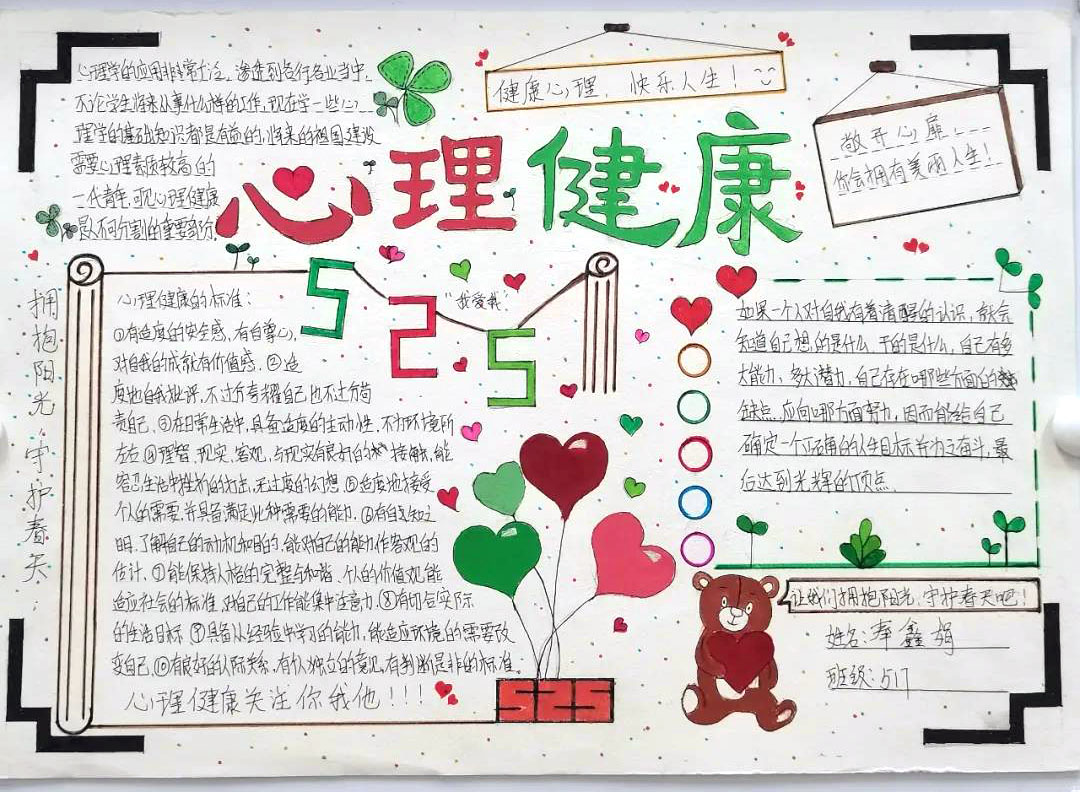 心理学的应用非常广泛，渗透到各行各业当中，
不论学生将来从事什么样的工作，现在学一些心
理学的基础知识都是有益的，将来的祖国建设
需要心理素质较高的
一代青年，可见心理健康
是不可分割的重要部分
健康心理，快乐人生！
敞开心扉，
你会拥有美丽人生！
心理健康
拥抱阳光，守护春天
525
"我爱我"
心理健康的标准：
①有适度的安全感，有自尊心，
对自我的成就有价值感．②适
度地自我批评，不过分夸耀自己也不过分苛
责自己．③在日常生活中，具备适度的主动性，不为环境所
左右④理智，现实，客观，与现实有良好的接触，能
容忍生活中挫折的打击，无过度的幻想．⑤适度地接受
个人的需要，并具备满足此种需要的能力．⑥有自知之
明，了解自己的动机和目的，能对自己的能力作客观的
估计．⑦能保持人格的完整与和谐，个人的价值观能
适应社会的标准，对自己的工作能集中注意力．⑧有切合实际
的生活目标．⑨具备从经验中学习的能力，能适应环境的需要改
变自己．⑩有良好的人际关系，有 独立的意见，有判断是非的标准．
心理健康关注你我他！！！
525
如果一个人对自我有着清醒的认识，就会
知道自己想的是什么，干的是什么，自己有多
大能力，多大潜力，自己存在哪些方面的
缺点，应向哪方面努力，因而能给自己
确定一个正确的人生目标并为之奋斗，最
后达到光辉的顶点．
让我们拥抱阳光，守护春天吧！
姓名：秦鑫
班级：517